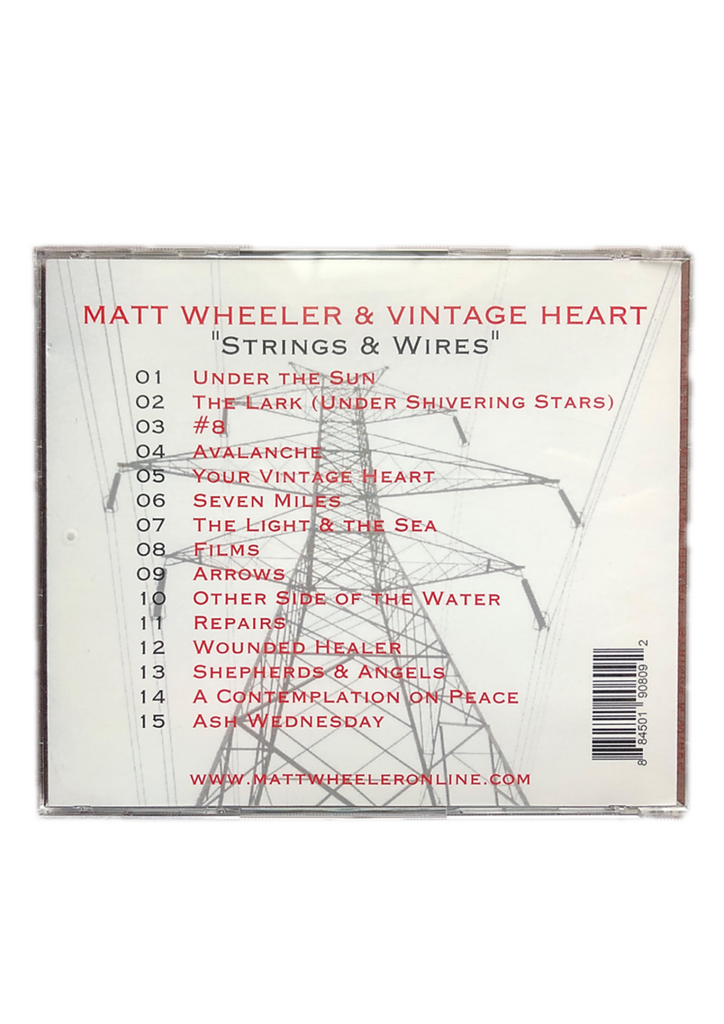 MATT WHEELER & VINTAGE HEART
"STRINGS & WIRES"
01 UNDER THE SUN
02 THE LARK (UNDER SHIVERING STARS)
03 #8
04 AVALANCHE
05 YOUR VINTAGE HEART
06 SEVEN MILES
07 THE LIGHT & THE SEA
08 FILMS
09 ARROWS
10 OTHER SIDE OF THE WATER
11 REPAIRS
12 WOUNDED HEALER
13 SHEPHERDS & ANGELS
14 A CONTEMPLATION ON PEACE
15 ASH WEDNESDAY
WWW.MATTWHEELERONLINE.COM
8 84501 90809 2